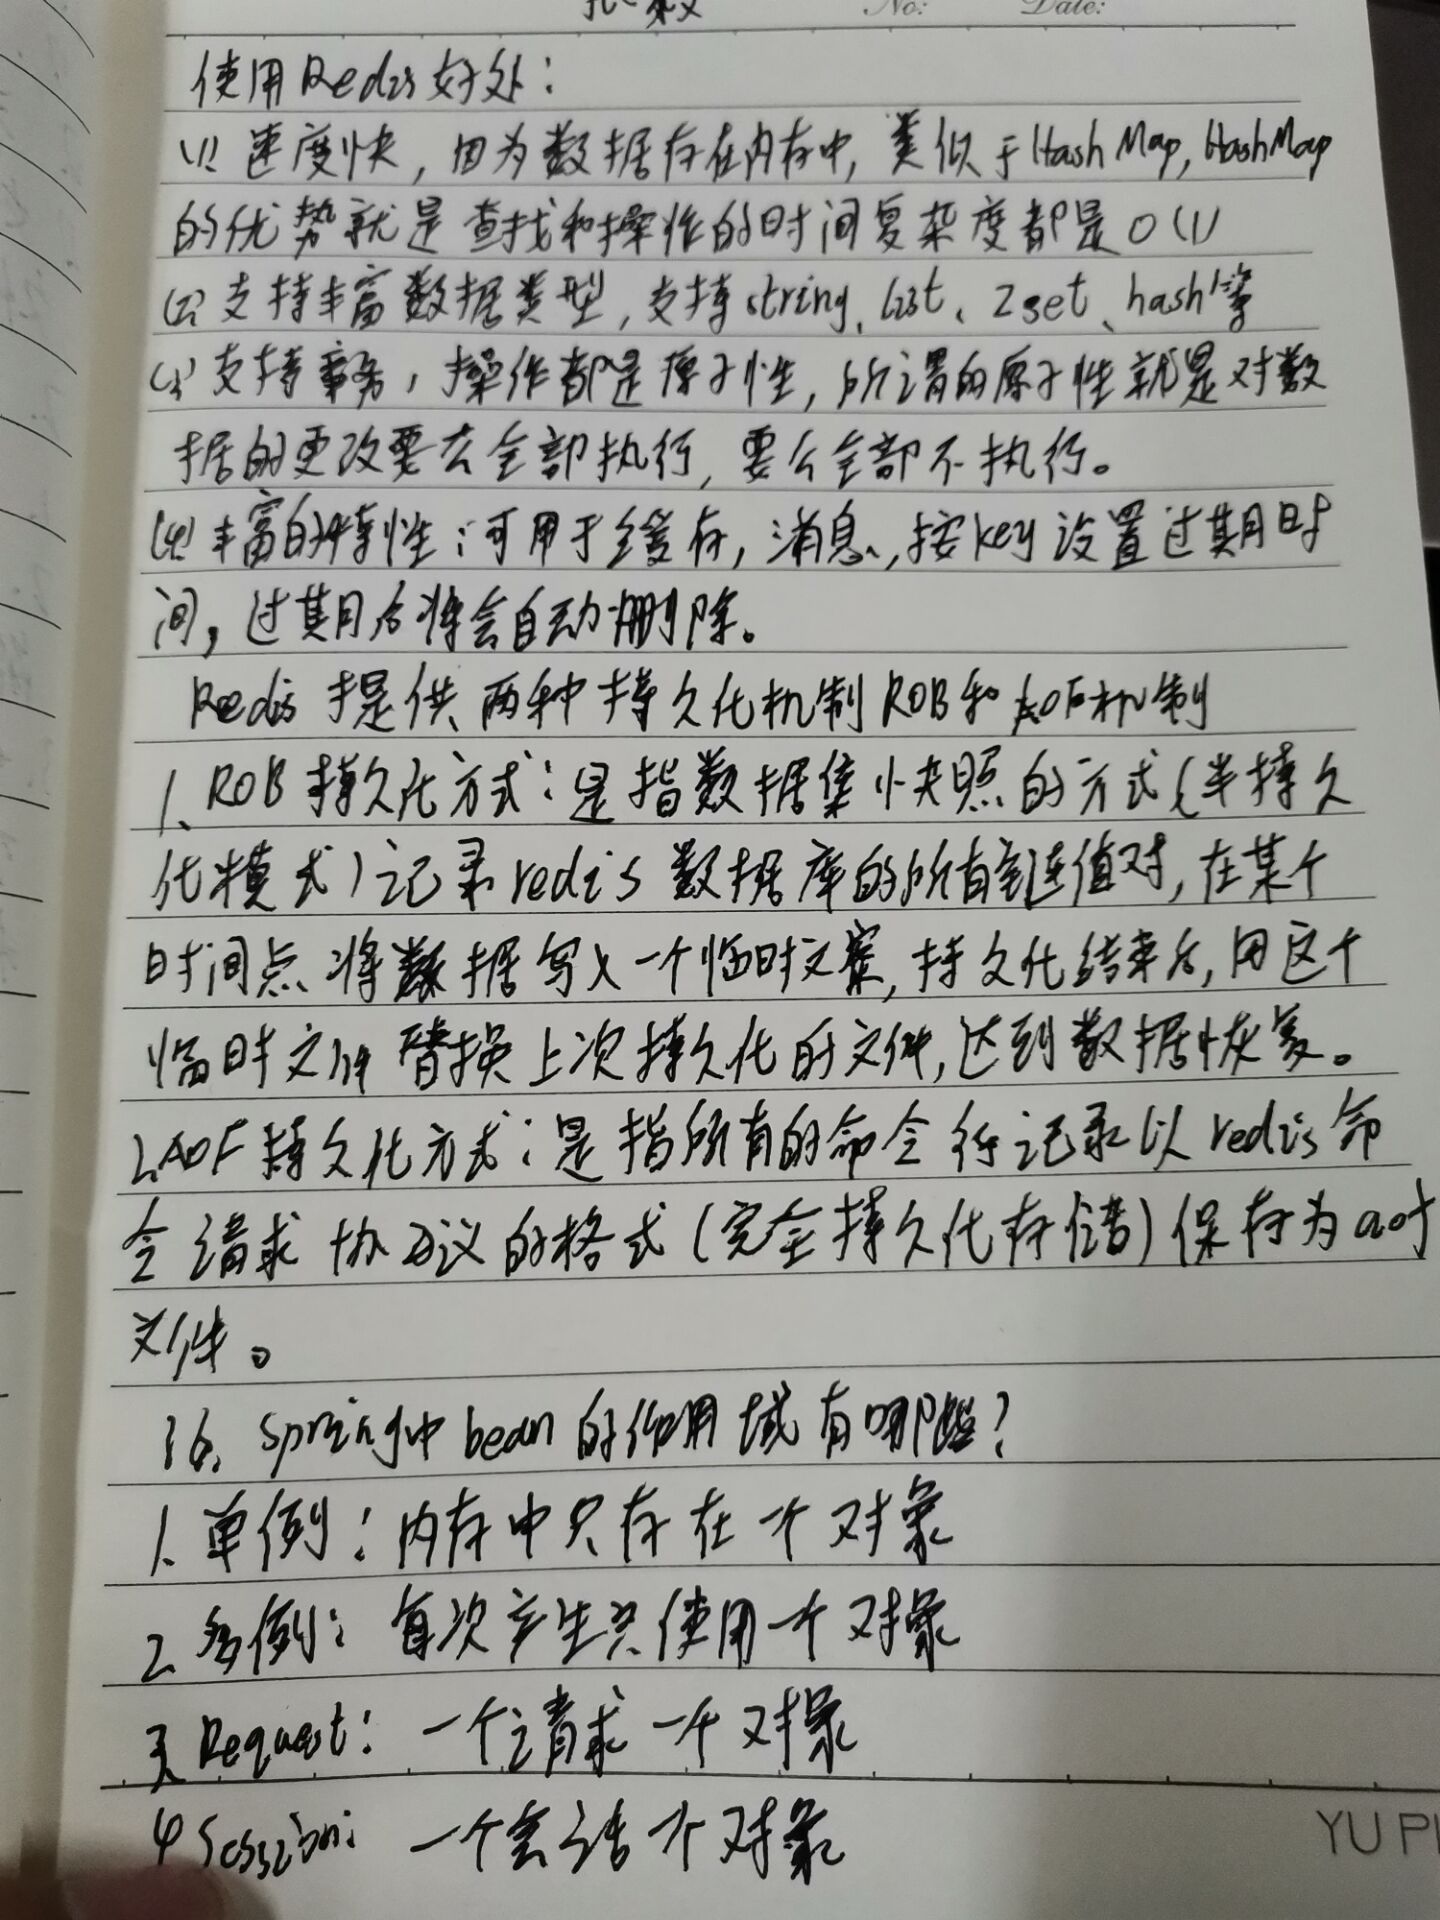 No: Date:
使用Redis好处：
(1) 速度快，因为数据存在内存中，类似于HashMap, HashMap
的优势就是查找和操作的时间复杂度都是O(1)
(2) 支持丰富数据类型，支持string、list、Zset、hash等
(3) 支持事务，操作都是原子性，所谓的原子性就是对数
据的更改要么全部执行，要么全部不执行。
(4) 丰富的特性：可用于缓存，消息，按key设置过期时
间，过期后将会自动删除。
Redis提供两种持久化机制ROB和AOF机制
1、ROB持久化方式：是指数据集快照的方式(半持久
化模式)记录redis数据库的所有键值对，在某个
时间点将数据写入一个临时文案，持久化结束后，用这个
临时文件替换上次持久化的文件，达到数据恢复。
2、AOF持久化方式：是指所有的命令行记录以redis命
令请求协议的格式(完全持久化存储)保存为aof
文件。
16、Spring中bean的作用域有哪些？
1、单例：内存中只存在一个对象
2、多例：每次产生只使用一个对象
3、Request：一个请求一个对象
4 Session：一个会话一个对象
YU PI